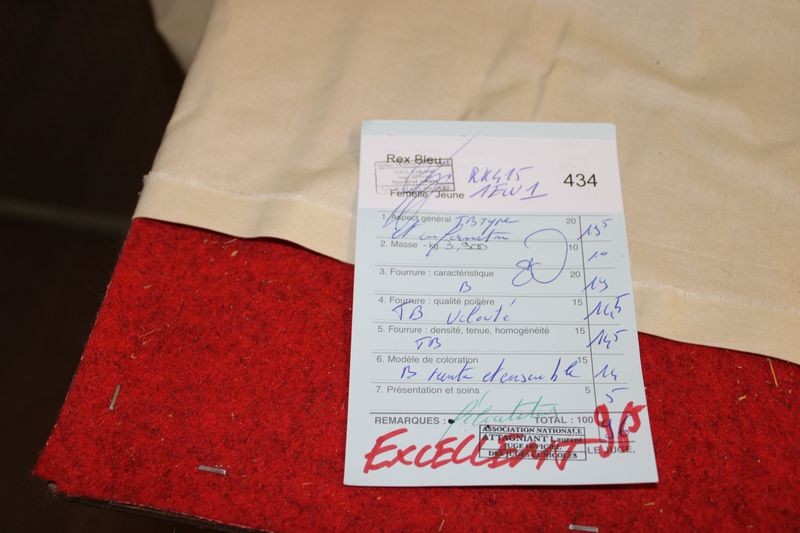 Rex Bleu
RK415
Femelle Jeune 1EW1
434
1. Aspect général TB type 20 19,5
et conformation
2. Masse - kg 3,900 10 10
3. Fourrure : caractéristique 20
B 19
4. Fourrure : qualité poilière 15
TB velouté 14,5
5. Fourrure : densité, tenue, homogénéité 15
TB 14,5
6. Modèle de coloration 15
B teinte et ensemble 14
7. Présentation et soins 5 5
REMARQUES : TOTAL : 100 96,5
ASSOCIATION NATIONALE
ATTAGNIANT Laurent
JUGE OFFICIEL
DES JUGES CUNICOLES
LE JUGE,
EXCELLENT